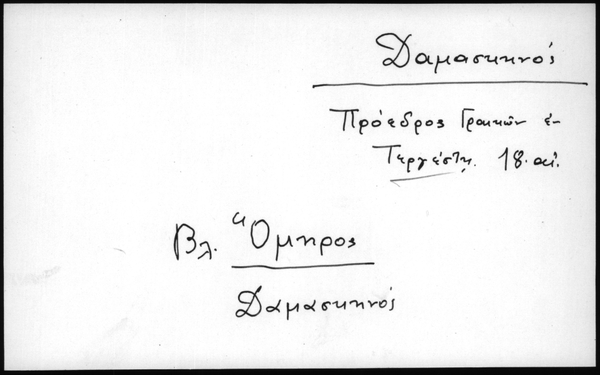 Δαμασκηνός
Πρόεδρος Γραικῶν ἐ-
Τεργέστῃ. 18. αἰ.
Βλ. Ὅμηρος
Δαμασκηνός